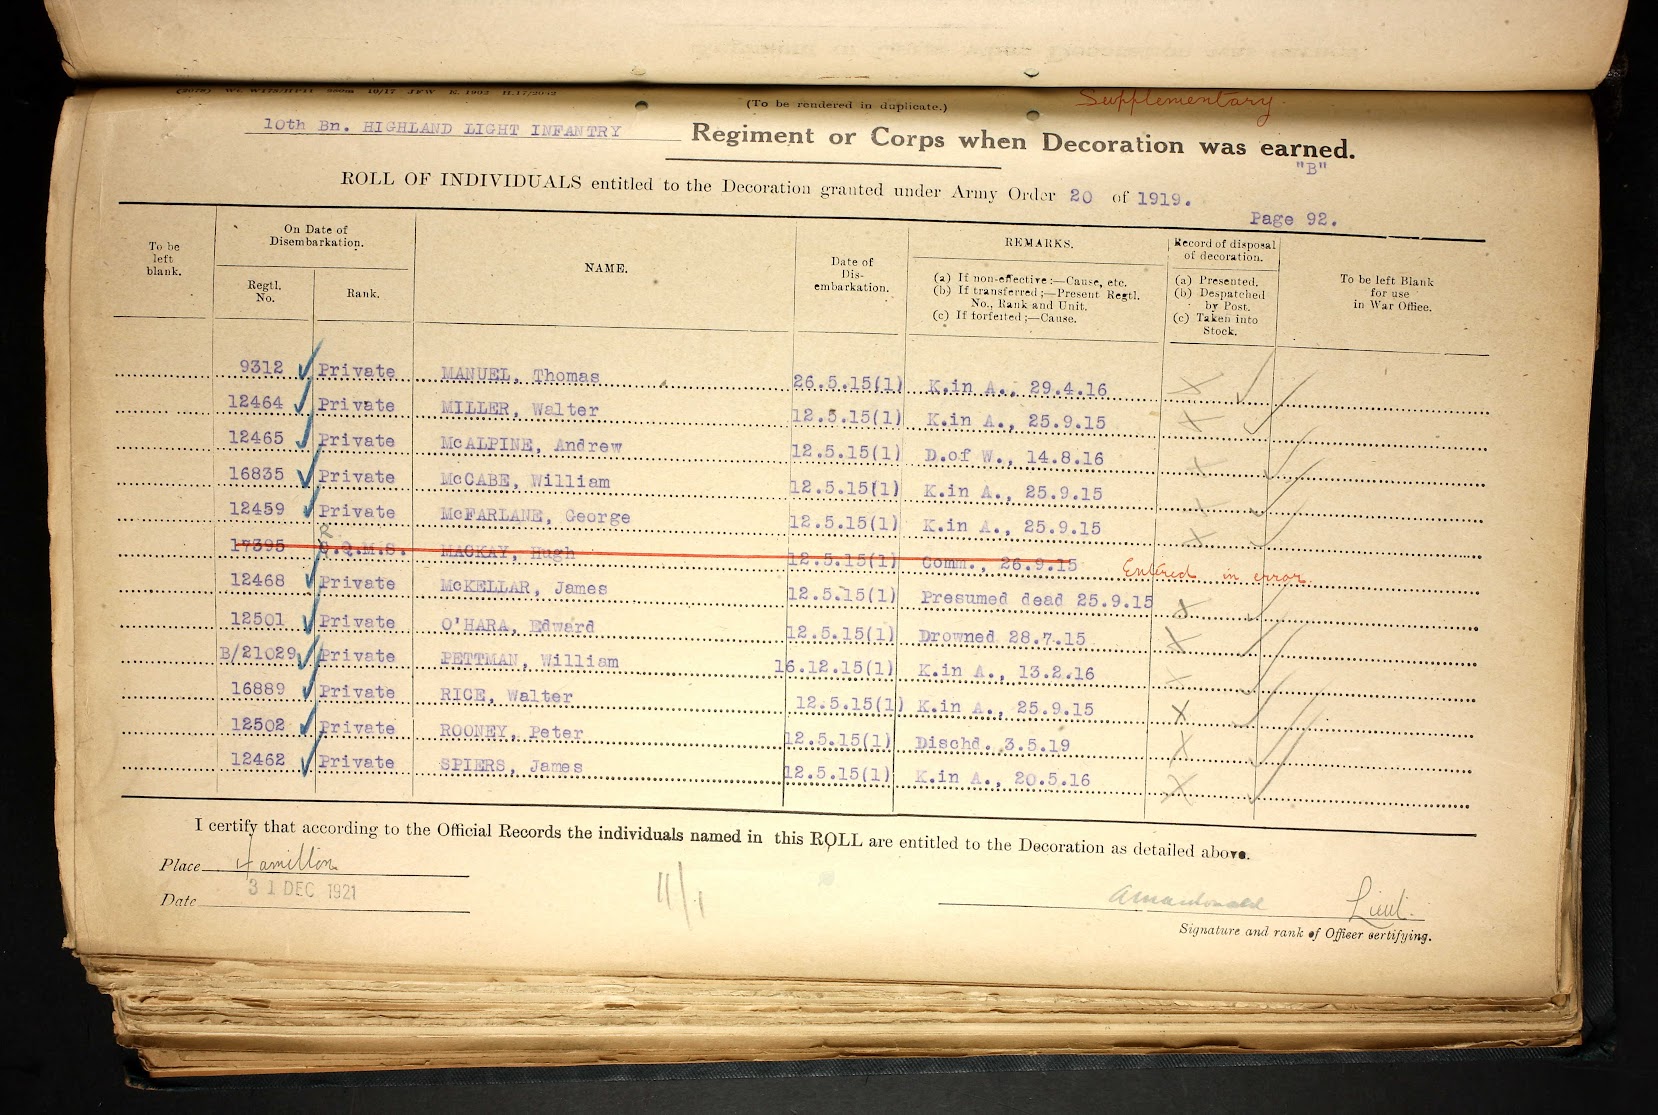 (To be rendered in duplicate.) Supplementary
10th Bn. HIGHLAND LIGHT INFANTRY Regiment or Corps when Decoration was earned.
"B"
ROLL OF INDIVIDUALS entitled to the Decoration granted under Army Order 20 of 1919.
Page 92.
To be left blank.
On Date of Disembarkation.
Regtl. No.
Rank.
NAME.
Date of Dis-embarkation.
REMARKS.
(a) If non-effective:—Cause, etc.
(b) If transferred;—Present Regtl. No., Rank and Unit.
(c) If forfeited;—Cause.
Record of disposal of decoration.
(a) Presented.
(b) Despatched by Post.
(c) Taken into Stock.
To be left Blank for use in War Office.
9312 Private MANUEL, Thomas 26.5.15(1) K.in A., 29.4.16
12464 Private MILLER, Walter 12.5.15(1) K.in A., 25.9.15
12465 Private McALPINE, Andrew 12.5.15(1) D.of W., 14.8.16
16835 Private McCABE, William 12.5.15(1) K.in A., 25.9.15
12459 Private McFARLANE, George 12.5.15(1) K.in A., 25.9.15
17395 .Q.M.S. MACKAY, Hugh 12.5.15(1) Comm., 26.9.15 Entered in error.
12468 Private McKELLAR, James 12.5.15(1) Presumed dead 25.9.15
12501 Private O'HARA, Edward 12.5.15(1) Drowned 28.7.15
B/21029 Private PETTMAN, William 16.12.15(1) K.in A., 13.2.16
16889 Private RICE, Walter 12.5.15(1) K.in A., 25.9.15
12502 Private ROONEY, Peter 12.5.15(1) Dischd. 3.5.19
12462 Private SPIERS, James 12.5.15(1) K.in A., 20.5.16
I certify that according to the Official Records the individuals named in this ROLL are entitled to the Decoration as detailed above.
Place Hamilton
Date 31 DEC 1921
11/1
AMacdonald Lieut.
Signature and rank of Officer certifying.